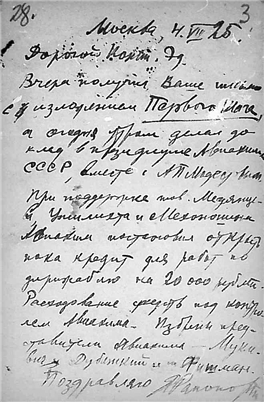 28.
3
Москва, 4.VIII 25
Дорогой Конст. Эд.
Вчера получил Ваше письмо
с изложением Первого Шага,
а сегодня утром делал до
клад в президиуме Авиахима
СССР вместе с
При поддержке тов.
и Уншлихта и Мехоношина
Авиахим постановил открыть
пока кредит для работ по
дирижаблю на 20 000 рублей.
Расходование средств под контро
лем Авиахима. Избраны пред
ставители Авиахима —
и Дубенский и
Поздравляю